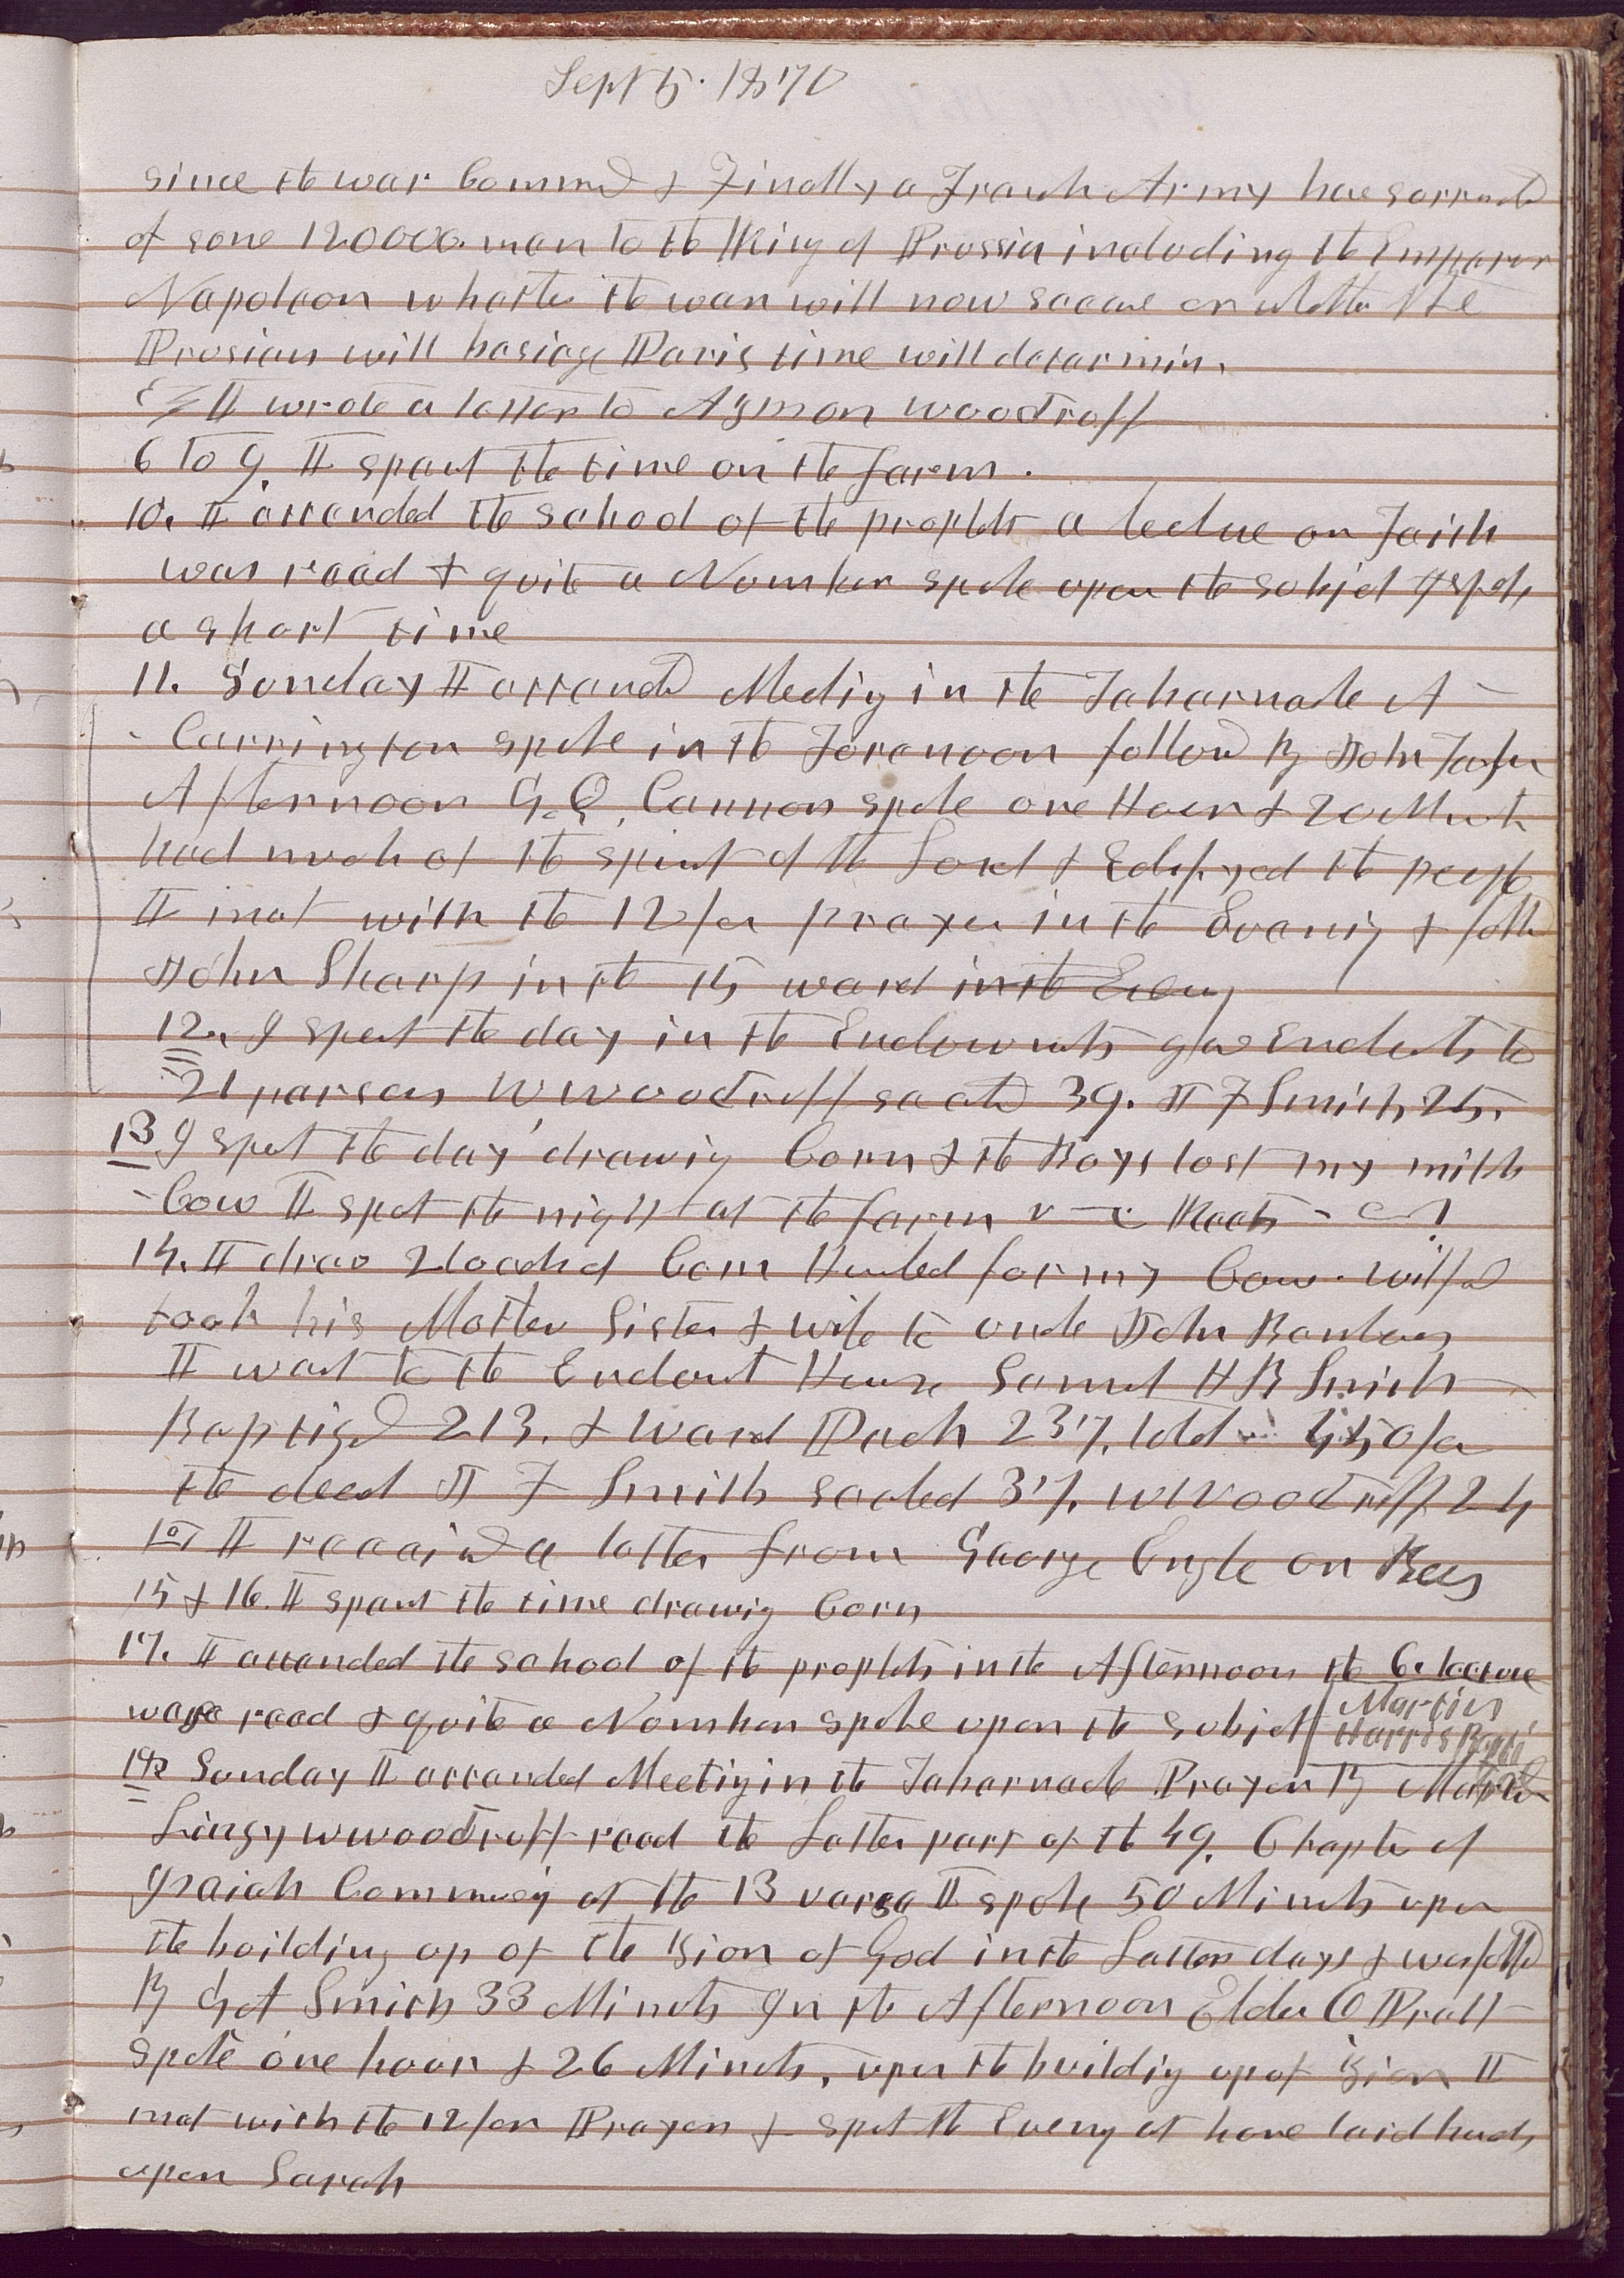 Sept 5. 1870
since the war Commend & Finally a French Army have surrendd
of some 120000. men to the King of Prussia including the Emperor
Napoleon whether the war will now seeme or whether the
Prusians will beseige Paris time will determin.
I wrote a letter to Azmon Woodruff
6 To 9. I spent the time on the farm.
10. I attended the school of the prophets a lecture on Faith
was read & quite a Number spoke upon the subject I spoke
a short time
11. Sunday I attended Meeting in the Tabernacle A
Carrington spoke in the Forenoon followd By John Taylor
Afternoon G. Q. Cannon spoke one Hour & 20 Minuts
had much of the spirit of the Lord & Edifyed the people
I met with the 12 for prayer in the Evening &
John Sharp in the 15 ward in the Evening
12. I spent the day in the Endowments gave Endowmts to
21 persons W Woodruff sealed 39. J F Smith 25.
13 I spet the day drawing Corn & the Boys lost my milch
Cow I spet the night at the farm
14. I drew 2 loads of Corn Hunted for my Cow. Wilford
took his Mother Sister & wife to uncle John Bentons
I went to the Endowment House Samuel H B Smith
Baptized 213. & Ward Pack 237. total 450 for
the dead J F Smith sealed 37. W Woodruff 24
I receivd a letter from George Engle on Bees
15 & 16. I spent the time drawing Corn
17. I attended the school of the prophets in the Afternoon the 6. lecture
was read & quite a Number spoke upon the subject Martin
Harris Bapt
18 Sunday I attended Meeting in the Tabernacle Prayer By
Lingy W Woodruff read the Latter part of the 49. Chapter of
Isaiah Commencing at the 13 verse I spoke 50 Minuts upon
the building up of the Zion of God in the Latter days & was followed
By G A Smith 33 Minuts In the Afternoon Elder O Pratt
spoke one hour & 26 Minuts, upon the building up of Zion I
met with the 12 for Prayer & spet the Evening at home laid hands
upon Sarah